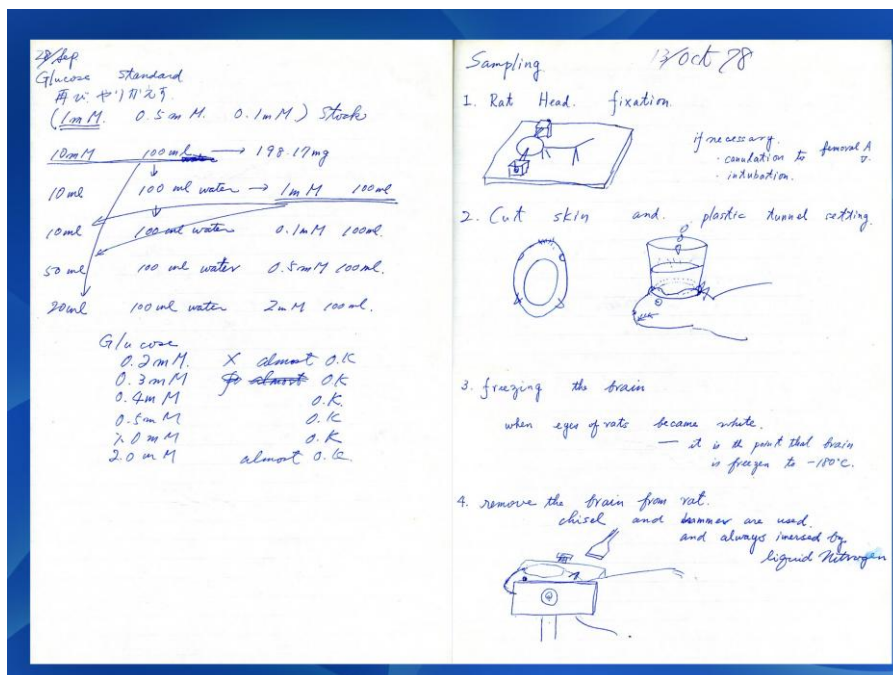 28/Sep
Glucose Standard
再びやりかえす.
(1mM. 0.5mM. 0.1mM) Stock
10mM 100ml → 198.17mg
10ml 100ml water → 1mM 100ml
10ml 100ml water 0.1mM 100ml.
50ml 100ml water 0.5mM 100ml.
20ml 100ml water 2mM 100ml.
Glucose
0.2mM. X almost O.K
0.3mM almost OK
0.4mM O.K.
0.5mM O.K
1.0mM O.K
2.0mM almost O.K.
Sampling 13/Oct 78
1. Rat Head. fixation
if necessary.
・canulation to femoral A
V.
・intubation.
2. Cut skin and. plastic tunnel setting
3. freezing the brain
when eyes of rats became white.
— it is the point that brain
is freezen to -180°C.
4. remove the brain from rat.
chisel and hummer are used.
and always inersed by
liquid Nitrogen